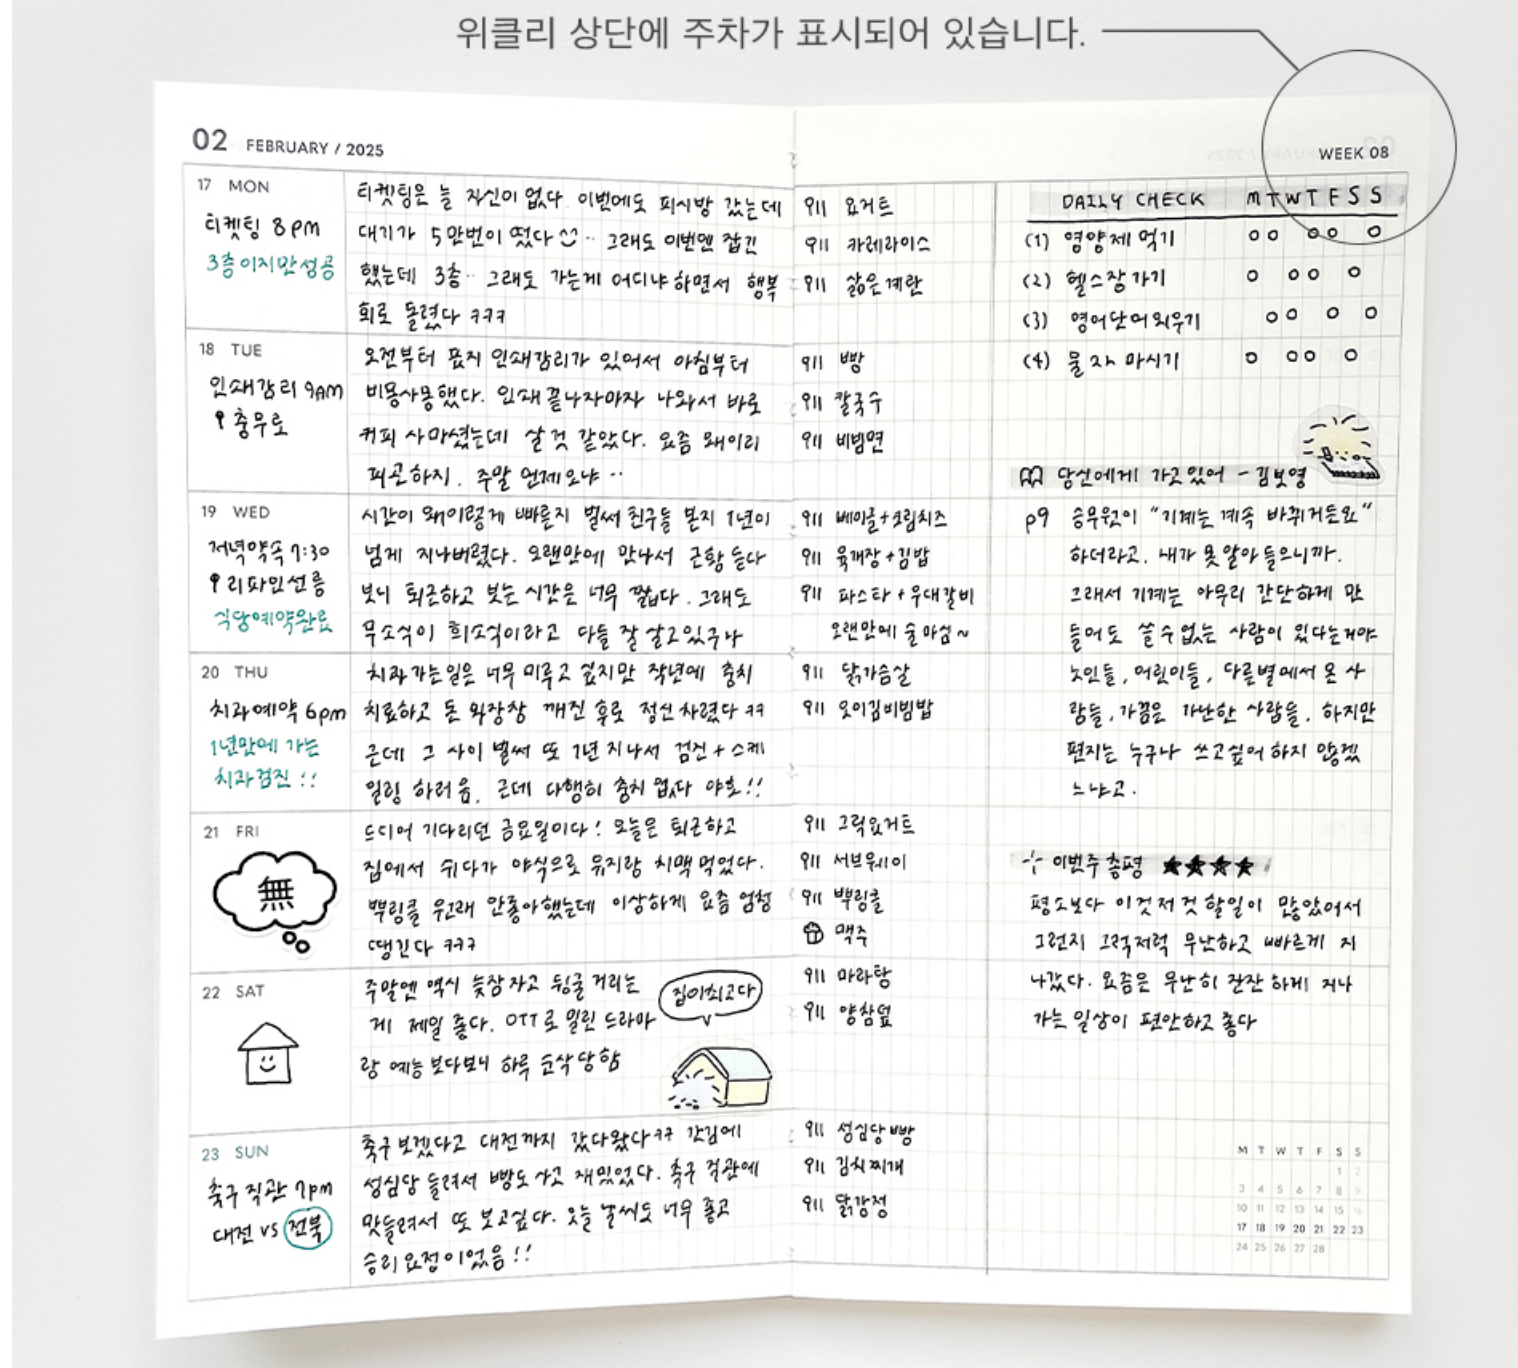 위클리 상단에 주차가 표시되어 있습니다.
02 FEBRUARY / 2025
17 MON
티켓팅 8pm
3층이지만성공
티켓팅은 늘 자신이 없다. 이번에도 피시방 갔는데
대기가 5만번이 떴다 .. 그래도 이번엔 잡긴
했는데 3층.. 그래도 가는게 어디냐하면서 행복
회로 돌렸다 ㅋㅋㅋ
18 TUE
인쇄감리 9AM
충무로
오전부터 표지 인쇄감리가 있어서 아침부터
비몽사몽했다. 인쇄끝나자마자 나와서 바로
커피 사마셨는데 살것 같았다. 요즘 왜이리
피곤하지. 주말 언제오냐..
19 WED
저녁약속 7:30
리파인선릉
식당예약완료
시간이 왜이렇게 빠른지 벌써 친구들 본지 1년이
넘게 지나버렸다. 오랜만에 만나서 근황 듣다
보니 퇴근하고 보는 시간은 너무 짧다. 그래도
무소식이 희소식이라고 다들 잘살고있구나
20 THU
치과예약 6pm
1년만에 가는
치과검진!!
치과가는일은 너무 미루고 싶지만 작년에 충치
치료하고 돈 와장창 깨진 후로 정신차렸다 ㅋㅋ
근데 그 사이 벌써 또 1년 지나서 검진+스케
일링 하러옴. 근데 다행히 충치 없다 야호!!
21 FRI
無
드디어 기다리던 금요일이다! 오늘은 퇴근하고
집에서 쉬다가 야식으로 유지랑 치맥먹었다.
뿌링클 원래 안좋아했는데 이상하게 요즘 엄청
땡긴다 ㅋㅋㅋ
22 SAT
주말엔 역시 늦잠자고 뒹굴거리는
게 제일 좋다. OTT로 밀린 드라마
랑 예능보다보니 하루 순삭당함
집이최고다
23 SUN
축구직관 7pm
대전 VS 전북
축구보겠다고 대전까지 갔다왔다ㅋㅋ 간김에
성심당 들려서 빵도 사고 재밌었다. 축구 직관에
맛들려서 또 보고싶다. 오늘 날씨도 너무 좋고
승리요정이었음!!
요거트
카레라이스
삶은계란
빵
칼국수
비빔면
베이글+크림치즈
육개장+김밥
파스타+우대갈비
오랜만에 술마심~
닭가슴살
오이김비빔밥
그릭요거트
서브웨이
뿌링클
맥주
마라탕
양참덮
성심당빵
김치찌개
닭강정
WEEK 08
DAILY CHECK M T W T F S S
(1) 영양제먹기
(2) 헬스장가기
(3) 영어단어외우기
(4) 물 2L 마시기
당신에게 가고있어 - 김보영
p9 승무원이 "기계는 계속 바뀌거든요"
하더라고. 내가 못알아들으니까.
그래서 기계는 아무리 간단하게 만
들어도 쓸수없는 사람이 있다는거야
노인들, 어린이들, 다른별에서 온 사
람들, 가끔은 가난한 사람들. 하지만
편지는 누구나 쓰고싶어하지 않겠
느냐고.
이번주총평 ★★★★
평소보다 이것저것 할일이 많았어서
그런지 그럭저럭 무난하고 빠르게 지
나갔다. 요즘은 무난히 잔잔하게 지나
가는 일상이 편안하고 좋다
M T W T F S S
1 2
3 4 5 6 7 8 9
10 11 12 13 14 15 16
17 18 19 20 21 22 23
24 25 26 27 28